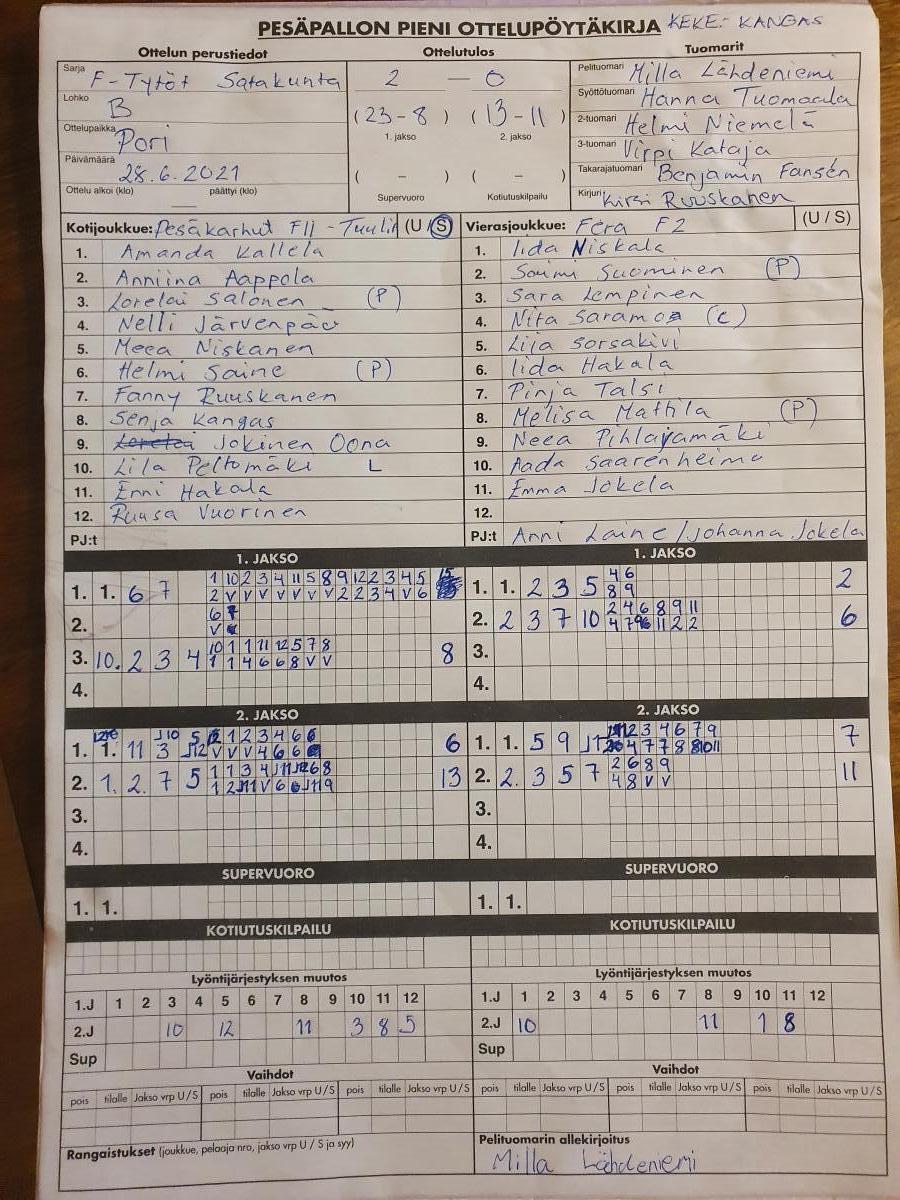 PESÄPALLON PIENI OTTELUPÖYTÄKIRJA KEKE:- KANGAS
Ottelun perustiedot
Sarja F-Tytöt Satakunta
Lohko B
Ottelupaikka Pori
Päivämäärä 28.6.2021
Ottelu alkoi (klo) päättyi (klo)
Ottelutulos
2 — 0
(23-8) (13-11)
1. jakso 2. jakso
( - ) ( - )
Supervuoro Kotiutuskilpailu
Tuomarit
Pelituomari Milla Lähdeniemi
Syöttötuomari Hanna Tuomaala
2-tuomari Helmi Niemelä
3-tuomari Virpi Kataja
Takarajatuomari Benjamin Fansén
Kirjuri Kirsi Ruuskanen
Kotijoukkue: Pesäkarhut F11 - Tuulit (U/S)
1. Amanda Kallela
2. Anniina Aappola
3. Lorelai Salonen (P)
4. Nelli Järvenpää
5. Meea Niskanen
6. Helmi Saine (P)
7. Fanny Ruuskanen
8. Senja Kangas
9. Jokinen Oona
10. Lila Peltomäki L
11. Enni Hakala
12. Ruusa Vuorinen
PJ:t
Vierasjoukkue: Fera F2 (U / S)
1. Iida Niskala
2. Saimi Suominen (P)
3. Sara Lempinen
4. Nita Saramo (C)
5. Lija Sorsakivi
6. Iida Hakala
7. Pinja Talsi
8. Melisa Mattila (P)
9. Neea Pihlajamäki
10. Aada Saarenheimo
11. Emma Jokela
12.
PJ:t Anni Laine / Johanna Jokela
1. JAKSO
1. 1. 6 7 1 10 2 3 4 11 5 8 9 12 2 3 4 5
2 V V V V V V 2 2 3 4 V 6
2. 6 7
V
3. 10. 2 3 4 10 1 1 11 12 5 7 8 8
1 1 4 6 6 8 V V
4.
1. JAKSO
1. 1. 2 3 5 4 6 2
8 9
2. 2 3 7 10 2 4 6 8 9 11 6
4 7 9 11 2 2
3.
4.
2. JAKSO
1. 1. 11 3 J12 1 2 3 4 6 6
V V V 4 6 6
2. 1. 2. 7 5 1 1 3 4 J11 J12 6 8 13
1 2 J11 V 6 6 J11 9
3.
4.
2. JAKSO
1. 1. 5 9 2 3 4 6 7 9 7
4 7 7 8 8 10 11
2. 2. 3 5 7 2 6 8 9 11
4 8 V V
3.
4.
SUPERVUORO
1. 1.
SUPERVUORO
1. 1.
KOTIUTUSKILPAILU
KOTIUTUSKILPAILU
Lyöntijärjestyksen muutos
1.J 1 2 3 4 5 6 7 8 9 10 11 12
2.J 10 12 11 3 8 5
Sup
Lyöntijärjestyksen muutos
1.J 1 2 3 4 5 6 7 8 9 10 11 12
2.J 10 11 1 8
Sup
Vaihdot
pois tilalle Jakso vrp U/S pois tilalle Jakso vrp U/S pois tilalle Jakso vrp U/S
Vaihdot
pois tilalle Jakso vrp U/S pois tilalle Jakso vrp U/S pois tilalle Jakso vrp U/S
Rangaistukset (joukkue, pelaaja nro, jakso vrp U / S ja syy)
Pelituomarin allekirjoitus
Milla Lähdeniemi